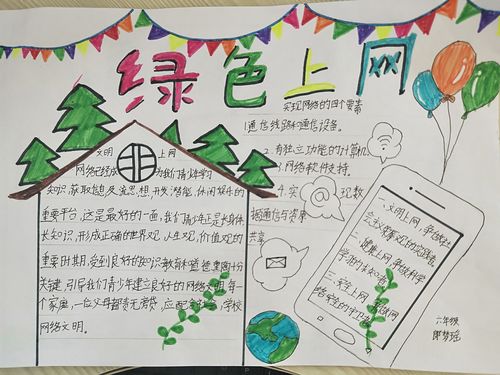 绿色上网
文明上网
网络已经成为我们青少年
知识,获取信息,交流思想,开发潜能,休闲娱乐的
重要平台,这是最好的一面,我们青少年正是长身体
长知识,形成正确的世界观,人生观,价值观的
重要时期,受到良好的知识教育和
关键,引导我们青少年建立良好的网络文明,每一
个家庭,一位父母都责无旁贷,应配合 学校
网络文明。
实现网络的四个要素
1通信线路和通信设备。
2.有独立功能的计算机
3.网络软件支持。
4.实 现数
据通信与资源
共享
一、文明上网,争做
会 的实践者
二、健康上网,争做科学
学习的
三、安全上网,争做网
络安全的守卫者
六年级